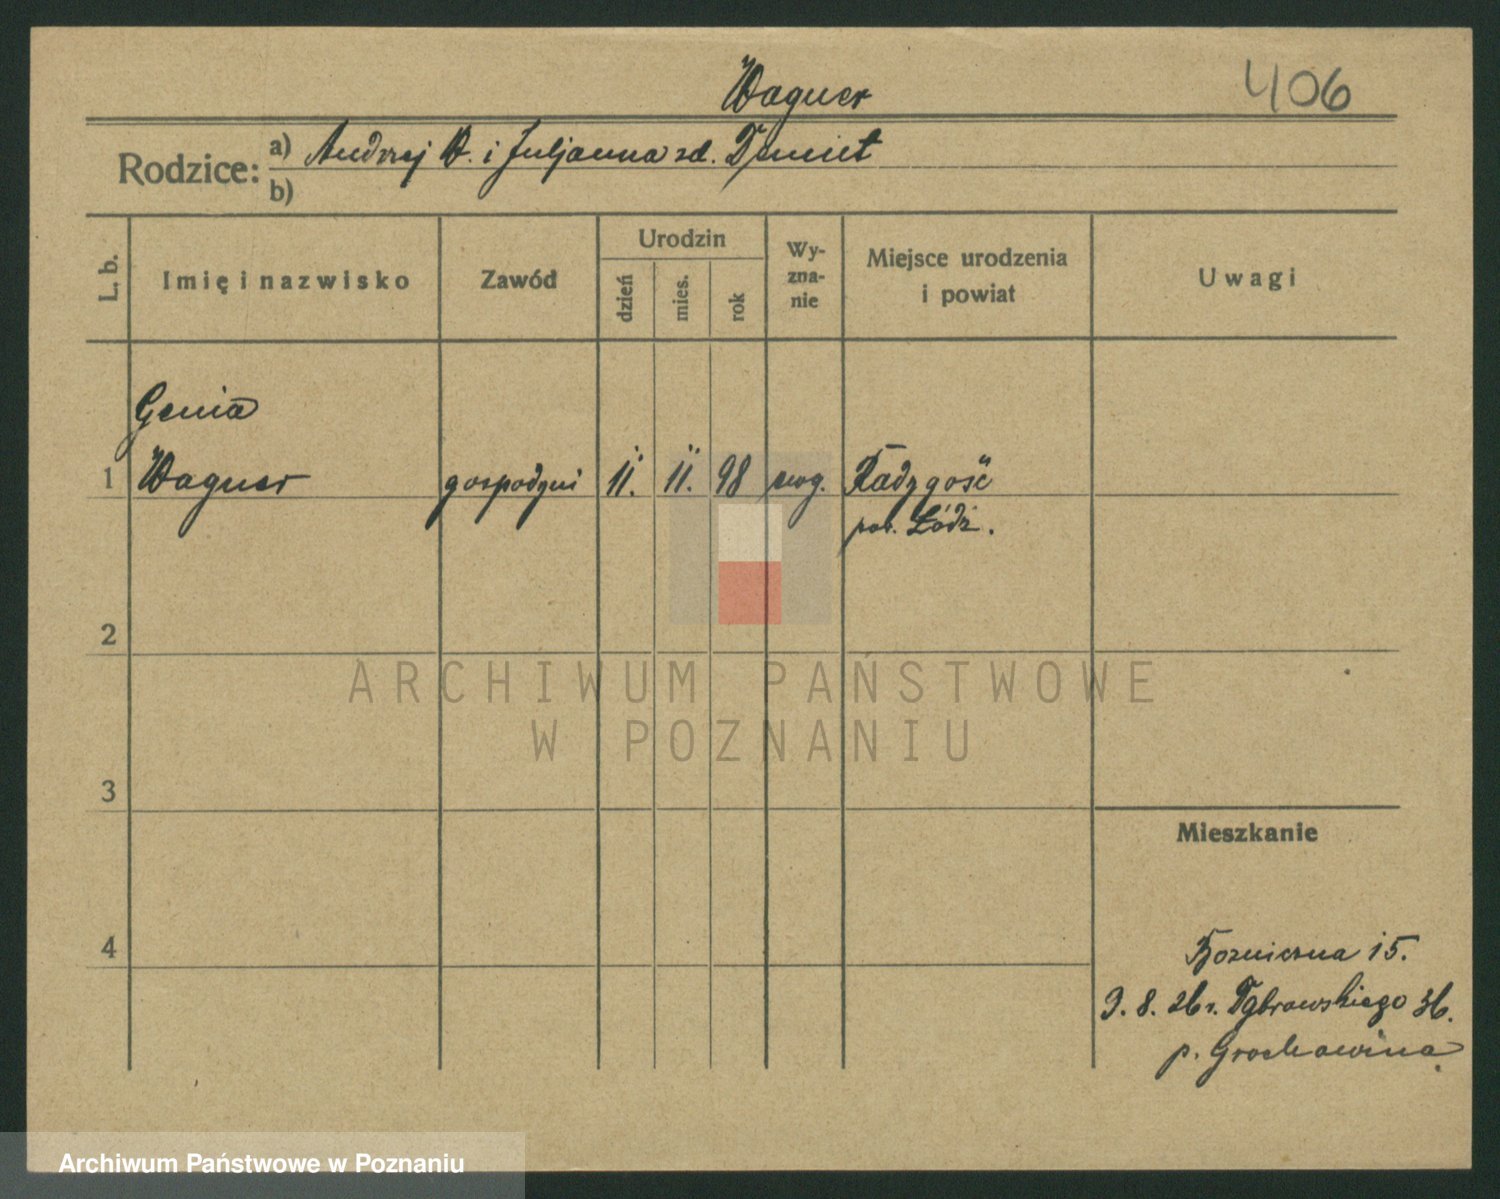 Wagner
406
Rodzice:
a) Andrzej W. i Juljanna zd.
b)
L. b.
Imię i nazwisko
Zawód
Urodzin
dzień
mies.
rok
Wy-
zna-
nie
Miejsce urodzenia
i powiat
Uwagi
Genia
1 Wagner gospodyni 11. 11. 98 ewg. Radzgość
pow. Łódź.
2
3
4
Mieszkanie
15.
9. 8. 26 r. Dąbrowskiego 36.
p. Grochowina
ARCHIWUM PAŃSTWOWE
W POZNANIU
Archiwum Państwowe w Poznaniu